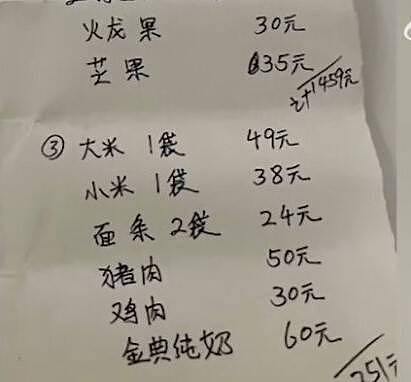 火龙果 30元
芒果 35元
计1459元
③ 大米 1袋 49元
小米 1袋 38元
面条 2袋 24元
猪肉 50元
鸡肉 30元
金典纯奶 60元
251元